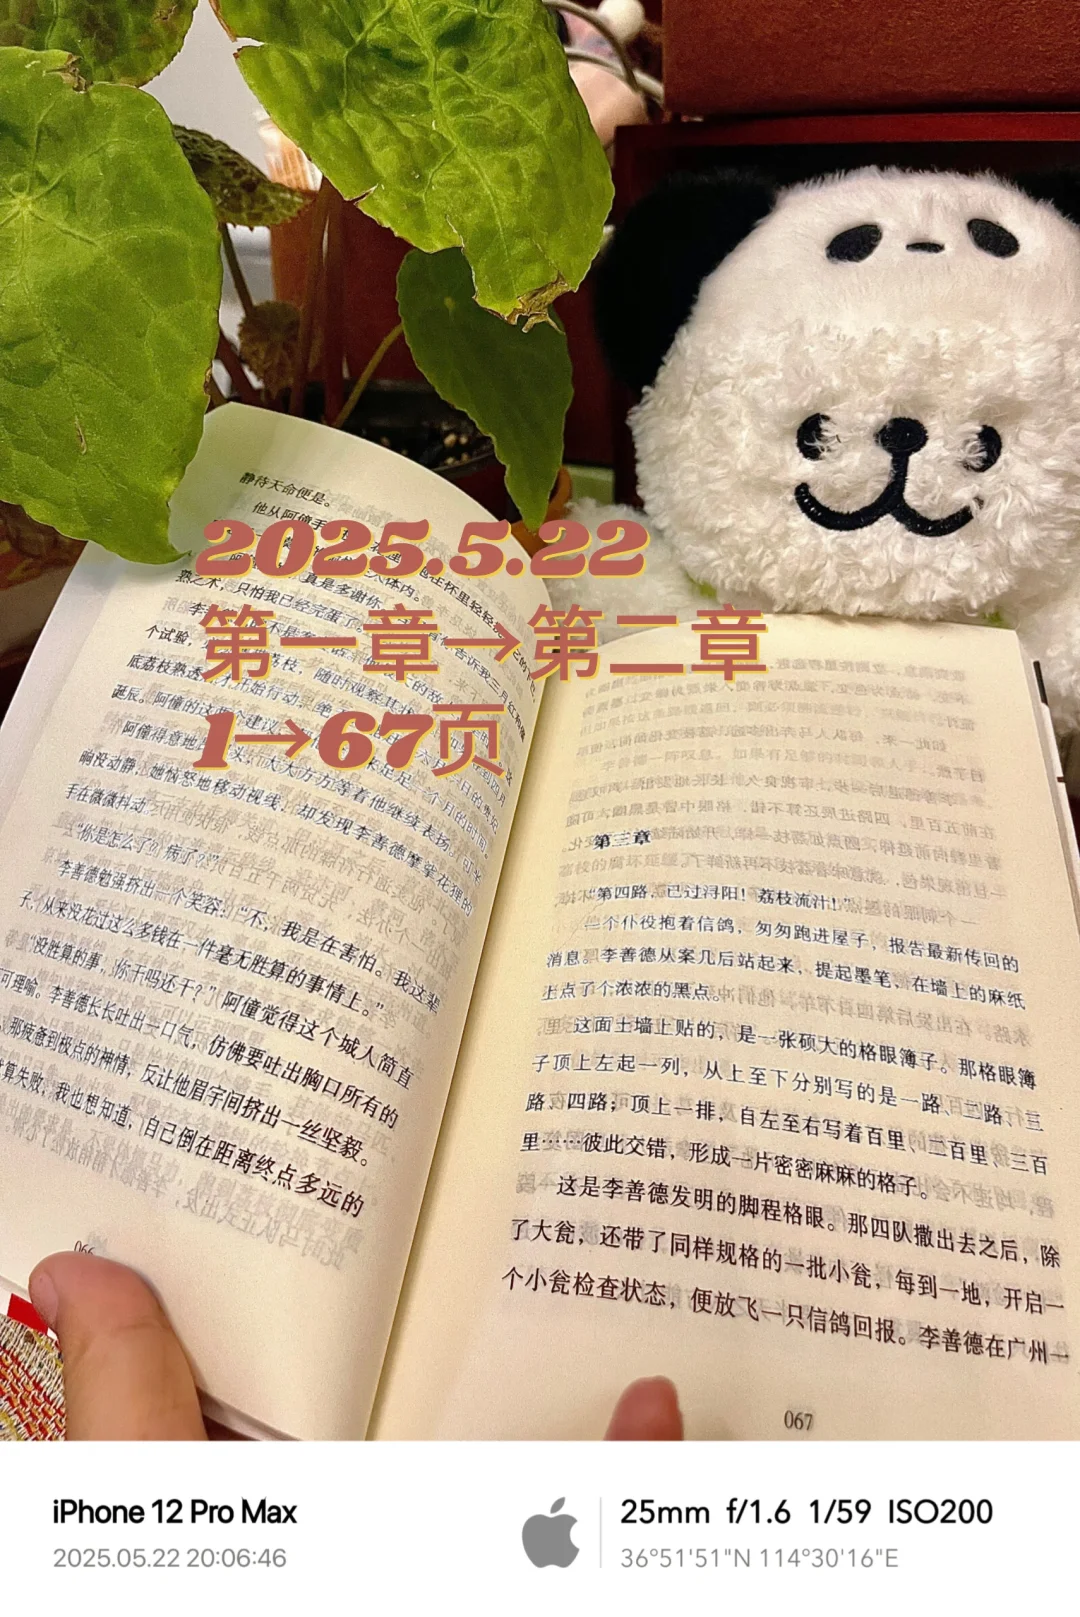 静待天命便是。
他从阿僮手
2025.5.22
第一章→第二章
1→67页
熟之术，只怕我已经完蛋了
个试验，
底荔枝熟透
诞辰。阿僮的这两个建议
阿僮得意地
响没动静，她恼怒地移动视线，却发现李善德摩挲花狸的
手在微微抖动。
“你是怎么了？病了？”
李善德勉强挤出一个笑容：“不，我是在害怕。我这辈
子，从来没花过这么多钱在一件毫无胜算的事情上。”
“没胜算的事，你干吗还干？”阿僮觉得这个城人简直
可理喻。李善德长长吐出一口气，仿佛要吐出胸口所有的
那疲惫到极点的神情，反让他眉宇间挤出一丝坚毅。
算失败，我也想知道，自己倒在距离终点多远的
066
第三章
“第四路，已过浔阳！荔枝流汁！”
一个仆役抱着信鸽，匆匆跑进屋子，报告最新传回的
消息。李善德从案几后站起来，提起墨笔，在墙上的麻纸
上点了个浓浓的黑点。
这面土墙上贴的，是一张硕大的格眼簿子。那格眼簿
子顶上左起一列，从上至下分别写的是一路、二路、三
路、四路；顶上一排，自左至右写着百里、二百里、三百
里……彼此交错，形成一片密密麻麻的格子。
这是李善德发明的脚程格眼。那四队撒出去之后，除
了大瓮，还带了同样规格的一批小瓮，每到一地，开启一
个小瓮检查状态，便放飞一只信鸽回报。李善德在广州一
067
iPhone 12 Pro Max
2025.05.22 20:06:46
25mm f/1.6 1/59 ISO200
36°51'51"N 114°30'16"E